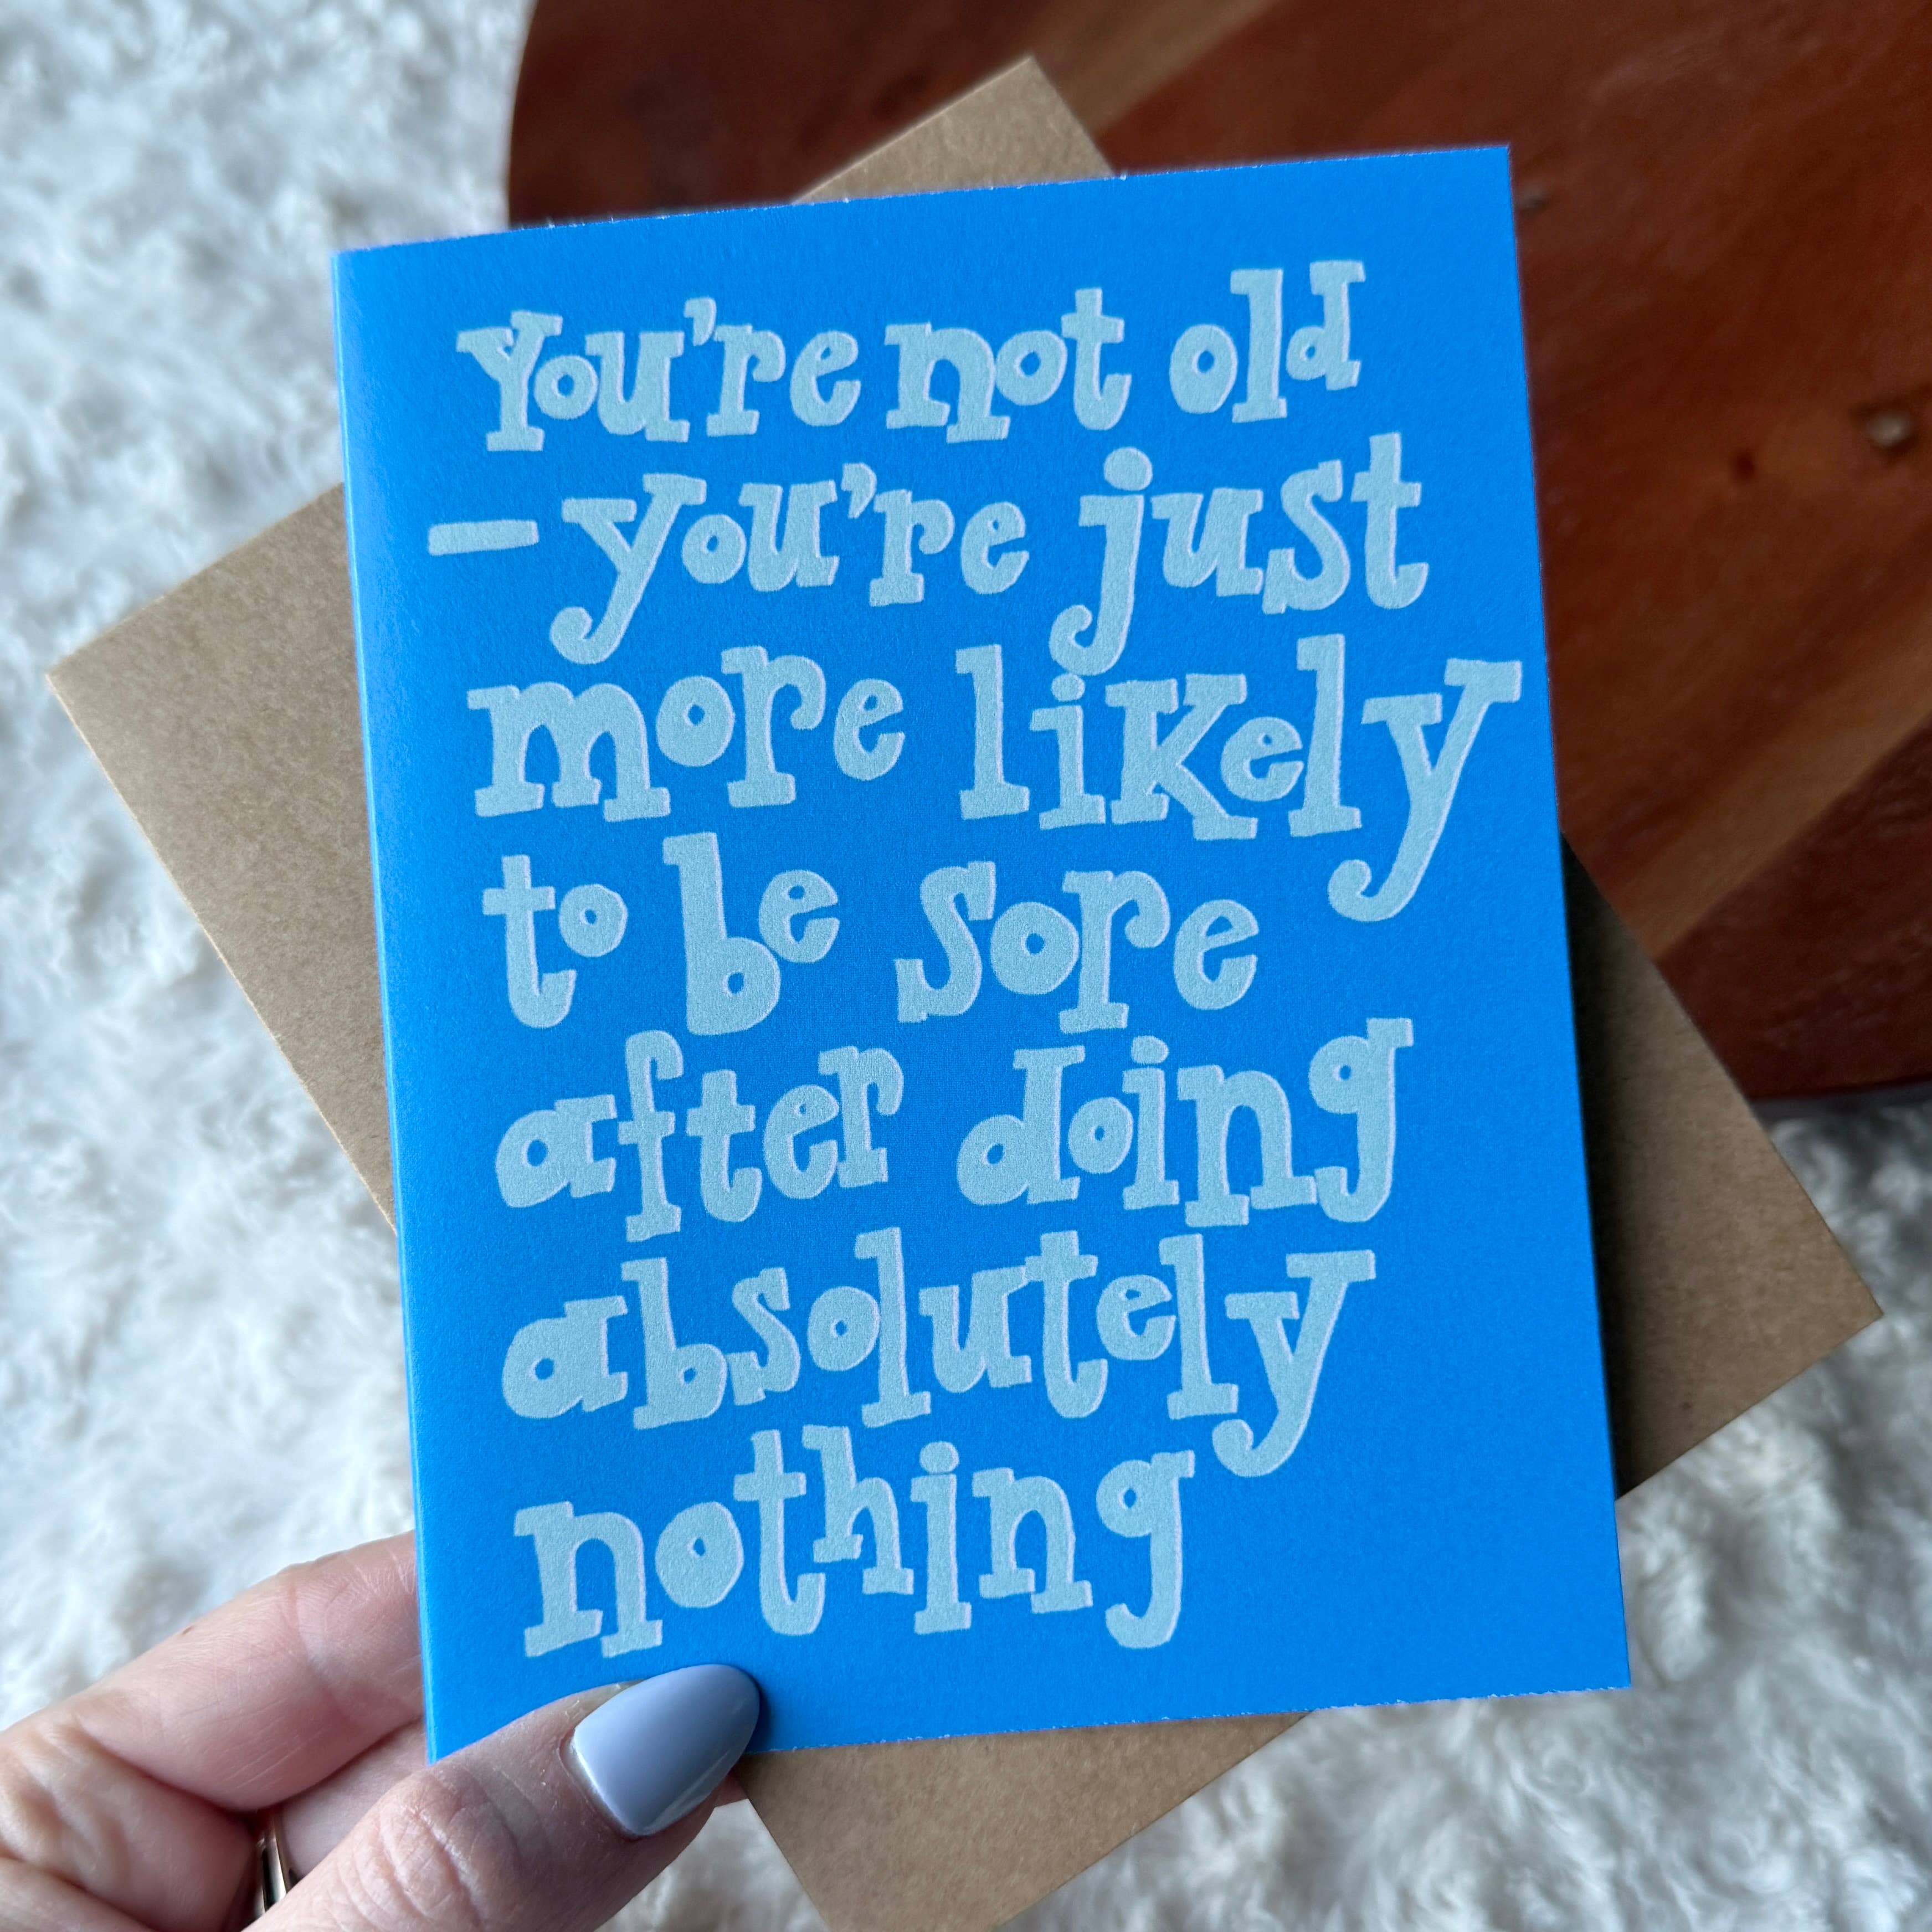 You're not old
– you're just
more likely
to be sore
after doing
absolutely
nothing